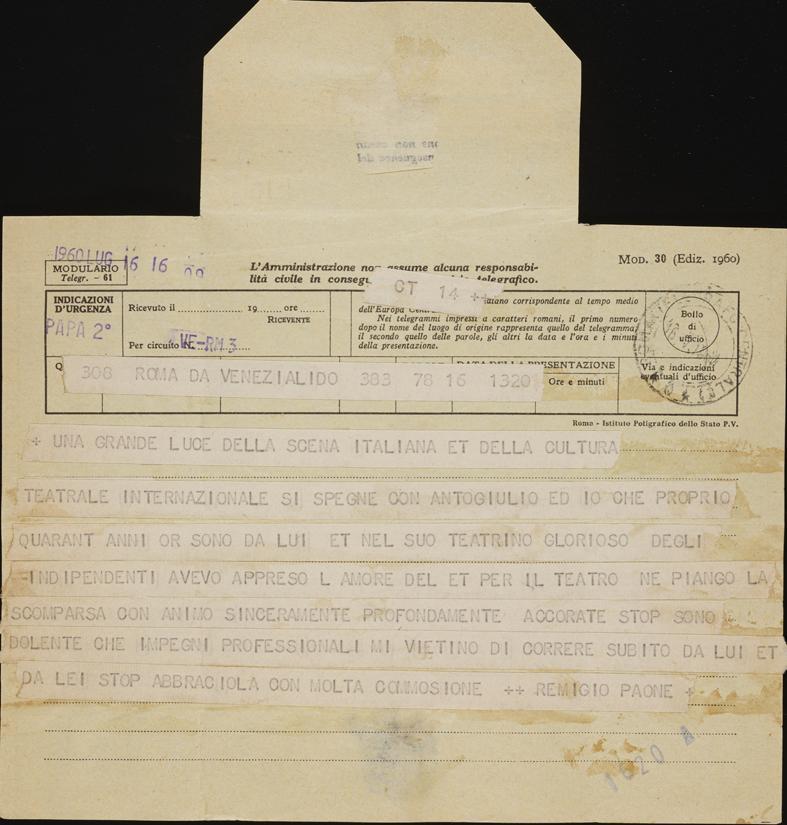 1960 LUG 16 16
MODULARIO
Telegr. - 61
L'Amministrazione non assume alcuna responsabi-
lità civile in conseguenza telegrafico.
MOD. 30 (Ediz. 1960)
CT 14 ++
INDICAZIONI
D'URGENZA
PAPA 2°
Ricevuto il 19 ore
RICEVENTE
Per circuito N. VE-RM 3
italiano corrispondente al tempo medio
dell'Europa
Nei telegrammi impressi a caratteri romani, il primo numero
dopo il nome del luogo di origine rappresenta quello del telegramma,
il secondo quello delle parole, gli altri la data e l'ora e i minuti
della presentazione.
Bollo
di
ufficio
DATA DELLA PRESENTAZIONE
Ore e minuti
Via e indicazioni
eventuali d'ufficio
308 ROMA DA VENEZIALIDO 383 78 16 1320
Roma - Istituto Poligrafico dello Stato P.V.
+ UNA GRANDE LUCE DELLA SCENA ITALIANA ET DELLA CULTURA
TEATRALE INTERNAZIONALE SI SPEGNE CON ANTOGIULIO ED IO CHE PROPRIO
QUARANT ANNI OR SONO DA LUI ET NEL SUO TEATRINO GLORIOSO DEGLI
-INDIPENDENTI AVEVO APPRESO L AMORE DEL ET PER IL TEATRO NE PIANGO LA
SCOMPARSA CON ANIMO SINCERAMENTE PROFONDAMENTE ACCORATE STOP SONO
DOLENTE CHE IMPEGNI PROFESSIONALI MI VIETINO DI CORRERE SUBITO DA LUI ET
DA LEI STOP ABBRACIOLA CON MOLTA COMMOSIONE ++ REMIGIO PAONE +
1620 A